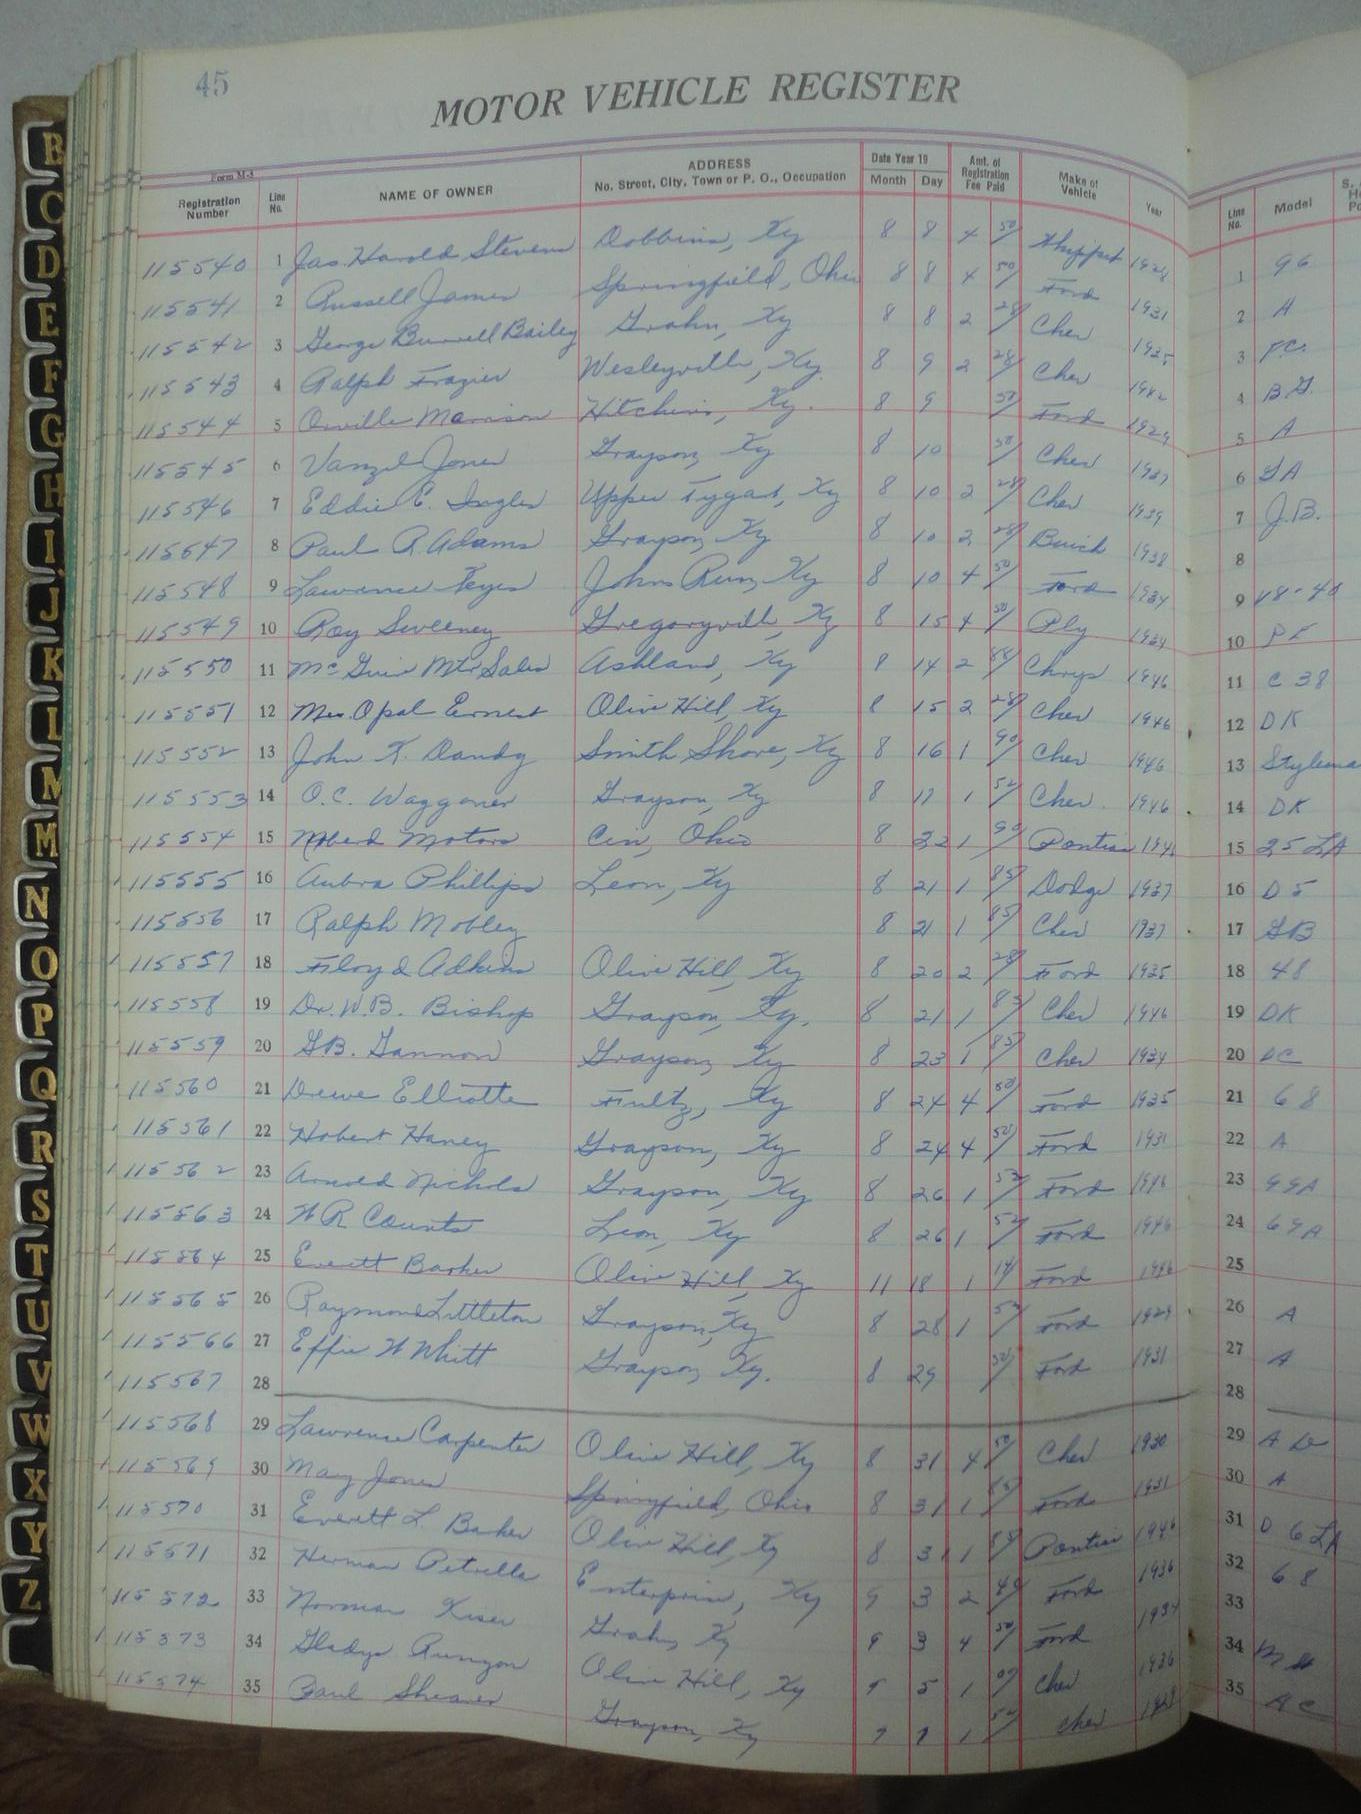 45
MOTOR VEHICLE REGISTER
Form M-4
Registration Number Line No. NAME OF OWNER ADDRESS No. Street, City, Town or P. O., Occupation Date Year 19 Month Day Amt. of Registration Fee Paid Make of Vehicle Year Line No. Model
115540 1 Jas. Harold Stevens Dobbins, Ky 8 8 4 50 Whippet 1 96
115541 2 Russell James Springfield, Ohio 8 8 4 50 Ford 1931 2 A
115542 3 George Burwell Bailey Grahn, Ky 8 8 2 28 Chev 1935 3
115543 4 Ralph Frazier Wesleyville, Ky. 8 9 2 28 Chev 1942 4 B.G.
115544 5 Orville Marrison Hitchins, Ky. 8 9 50 Ford 1929 5 A
115545 6 Vanzel Jones Grayson, Ky 8 10 50 Chev 1937 6 GA
115546 7 Eddie E. Ingles Upper Tygart, Ky 8 10 2 28 Chev 1939 7 J.B.
115547 8 Paul R Adams Grayson, Ky 8 10 2 28 Buick 1938 8
115548 9 Lawrence Keyes Johns Run, Ky 8 10 4 50 Ford 1934 9 V8-40
115549 10 Roy Sweeney Gregoryville, Ky 8 15 4 50 Ply 1934 10 PE
115550 11 McGuir Mtr Sales Ashland, Ky 8 14 2 Chrys 1946 11 C 38
115551 12 Mrs. Opal Ernest Olive Hill, Ky 8 15 2 28 Chev 1946 12 DK
115552 13 John K. Dandy Smith Shore, Ky 8 16 1 90 Chev 1946 13 Stylema
115553 14 O.C. Waggoner Grayson, Ky 8 17 1 52 Chev. 1946 14 DK
115554 15 Motors Cin, Ohio 8 22 1 90 Pontiac 194 15 25 LA
115555 16 Aubra Phillips Leon, Ky 8 21 1 85 Dodge 1937 16 D5
115556 17 Ralph Mobley 8 21 1 85 Chev 1937 17 GB
115557 18 Floyd Adkins Olive Hill, Ky 8 20 2 28 Ford 1935 18 48
115558 19 Dr. W.B. Bishop Grayson, Ky. 8 21 1 85 Chev 1946 19 DK
115559 20 G.B. Gannon Grayson, Ky 8 23 1 85 Chev 1934 20 DC
115560 21 Drewe Elliotte Fultz, Ky 8 24 4 50 Ford 1935 21 68
115561 22 Hobert Haney Grayson, Ky 8 24 4 50 Ford 1931 22 A
115562 23 Arnold Nichols Grayson, Ky 8 26 1 52 Ford 1946 23
115563 24 W R Counts Leon, Ky 8 26 1 52 Ford 1946 24 69A
115564 25 Everett Barker Olive Hill, Ky 11 18 1 14 Ford 1946 25
115565 26 Raymond Littleton Grayson, Ky 8 28 1 52 Ford 1929 26 A
115566 27 Effie W Whitt Grayson, Ky. 8 29 50 Ford 1931 27 A
115567 28 28
115568 29 Lawrence Carpenter Olive Hill, Ky 8 31 4 50 Chev 1930 29 AD
115569 30 May Jones Springfield, Ohio 8 31 1 85 Ford 1931 30 A
115570 31 Everett L. Barker Olive Hill, Ky 8 31 1 Pontiac 1946 31 D 6 LA
115571 32 Herman Petrella Enterprise, Ky 9 3 2 Ford 1936 32 68
115572 33 Norman Kiser Grahn, Ky 9 3 4 50 Ford 1934 33
115573 34 Gladys Runyon Olive Hill, Ky 9 5 1 07 Chev 1936 34
115574 35 Paul Shearer Grayson, Ky 9 7 1 52 Chev 35 AC
B
C
D
E
F
G
H
I
J
K
L
M
M
N
O
P
Q
R
S
T
U
V
W
X
Y
Z